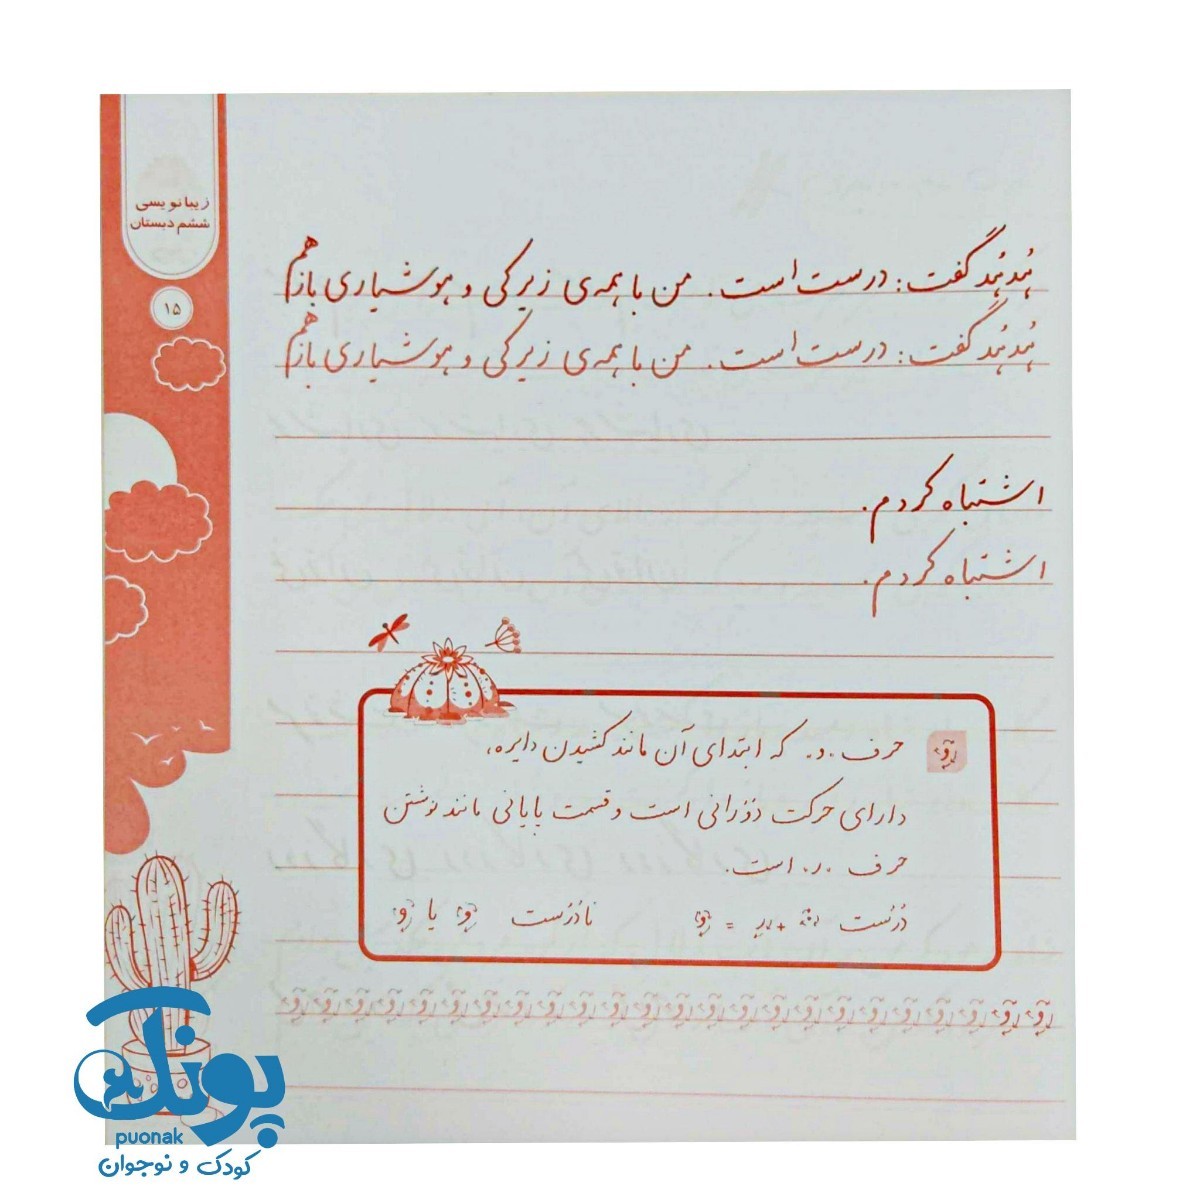 زیبانویسی
ششم دبستان
۱۵
هُدهُد گفت: درست است. من با همه‌ی زیرکی و هوشیاری باز هم
هُدهُد گفت: درست است. من با همه‌ی زیرکی و هوشیاری باز هم
اشتباه کردم.
اشتباه کردم.
و حرف «و» که ابتدای آن مانند کشیدن دایره،
دارای حرکت دَوَرانی است و قسمت پایانی مانند نوشتن
حرف «ر» است.
دُرُست + ر = و نادُرُست و یا و
و و و و و و و و و و و و و و و و و و و و و و و و
پونک
puonak
کودک و نوجوان